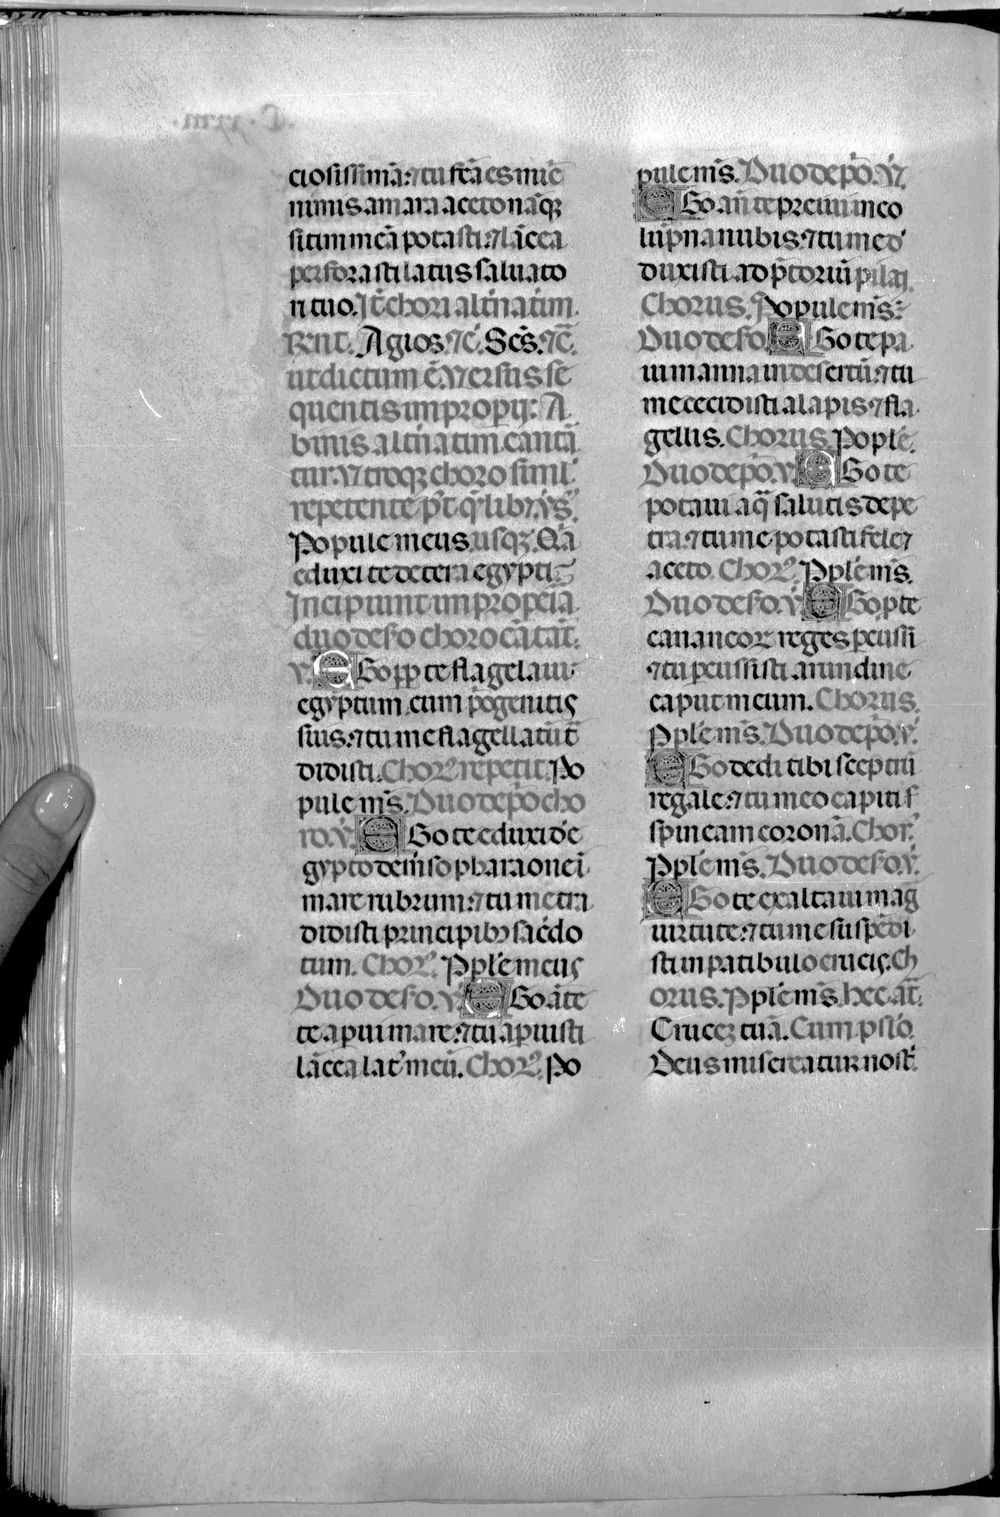 ciosissimā: ⁊ tu fc̄ā es mic̄
nimis amara aceto nāq̨
sitim meā potasti: ⁊ lācea
perforasti latus saluato
ri tuo. It̄ chori alt̄natim
Rn̄t. Agios. ⁊c̄. Sc̄s. ⁊c̄.
ut dictum ē. Versus se
quentis improperij: A
binis alt̄natim cantā
tur. Vtroq̨ choro simil'
repetente pꝰt q̄libꝫ v̄s.
Popule meus. usq̨. Q̄a
eduxi te de terra egypti
Incipiunt improperia
duo de fo choro cātāt̄.
V. EGo ꝓp te flagelaui
egyptum cum p̄ogenitis
suis: ⁊ tu me flagellatū t̄
didisti. Chorꝰ repetit. Po
pule m̄s. Duo de pō cho
ro. V̄. EGo te eduxi de e
gypto dem̄so pharaone ī
mare rubrum: ⁊ tu me tra
didisti principibꝫ sac̄do
tum. Chorꝰ. Pplē meus
Duo de fo. V̄. EGo āte
te aperui mare: ⁊ tu aperuisti
lācea latꝰ meū. Chorꝰ. Po
pule m̄s. Duo de pō. V̄.
EGo an̄ te preiui in co
lūpna nubis: ⁊ tu me d
duxisti ad p̄toriū pilati.
Chorus. Popule m̄s:
Duo de fo. EGo te pa
ui manna in desertū: ⁊ tu
me cecidisti alapis ⁊ fla
gellis. Chorus. Pople.
Duo de pō. V̄. EGo te
potaui aq̄ salutis de pe
tra: ⁊ tu me potasti fele ⁊
aceto. Chorꝰ. Pplē m̄s.
Duo de fo. V̄. EGo p te
cananeorꝝ reges p̱cussi
⁊ tu p̱cussisti arundine
caput meum. Chorus.
Pplē m̄s. Duo de pō. V̄.
EGo dedi tibi sceptrū
regale: ⁊ tu meo capiti s
spineam coronā. Chorꝰ.
Pplē m̄s. Duo de fo. V̄.
EGo te exaltaui maḡ
uirtute: ⁊ tu me suspēdi
sti in patibulo crucis. Ch
orus. Pplē m̄s. hec ān̄.
Crucez tuā. Cum psl̄o.
Deus misereatur nost̄.